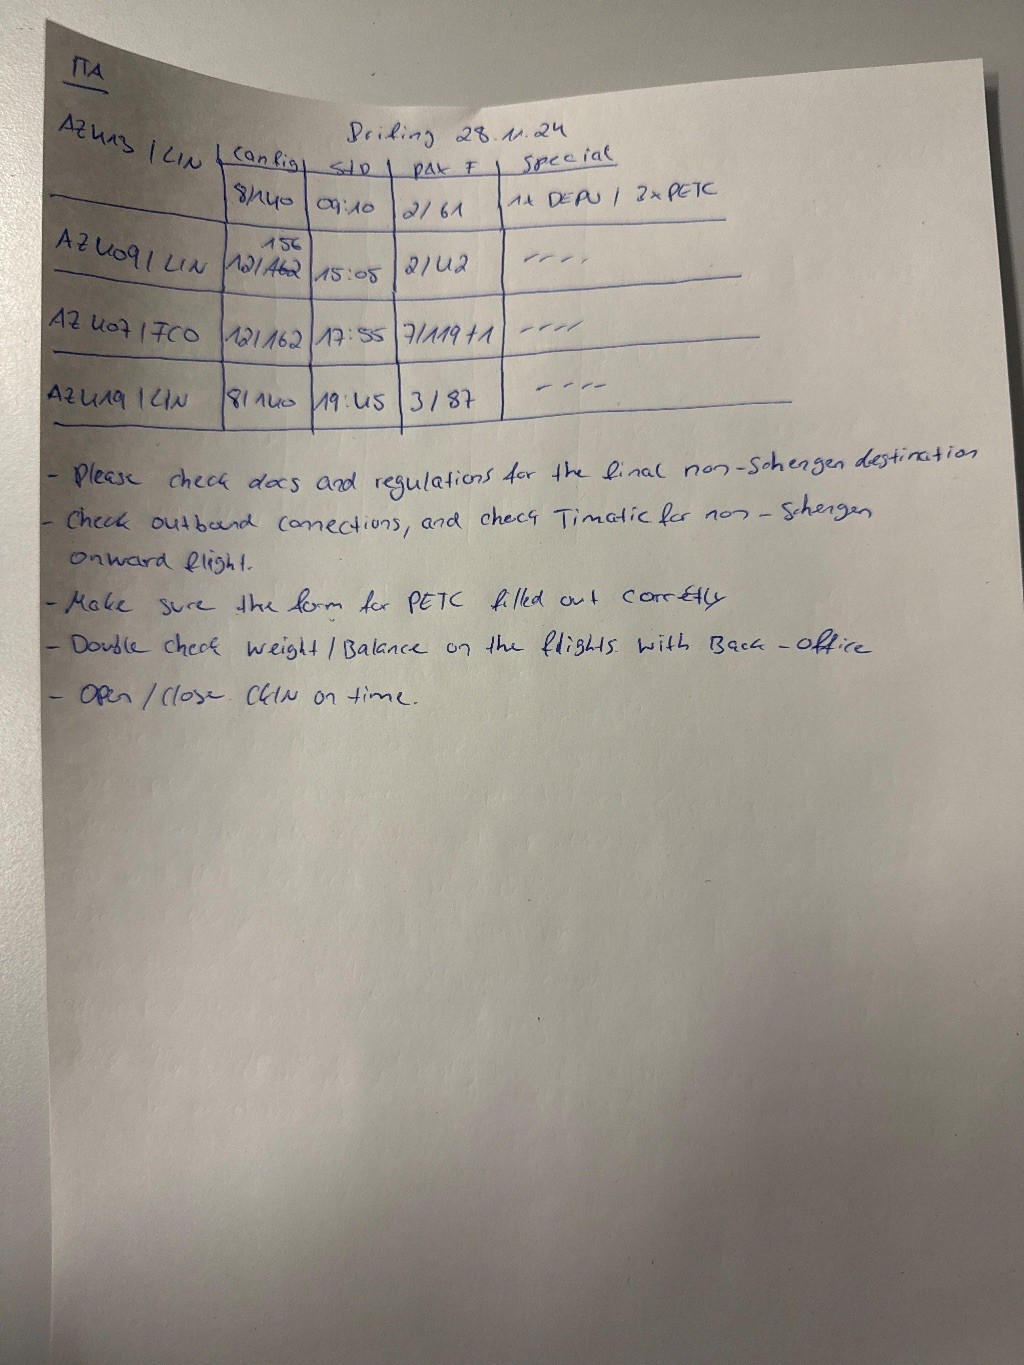 ITA
Briefing 28.11.24
Config STD PAX F Special
AZ413 / LIN 8/140 09:10 2/61 1x DEPU / 2xPETC
156
AZ409 / LIN 12/162 15:05 2/42 ----
AZ407 / FCO 12/162 17:55 7/119+1 ----
AZ419 / LIN 8/140 19:45 3/87 ----
- Please check docs and regulations for the final non-Schengen destination
- Check outbound connections, and check Timatic for non-Schengen
onward flight.
- Make sure the form for PETC filled out correctly
- Double check weight/Balance on the flights with Back-office
- Open/Close CKIN on time.